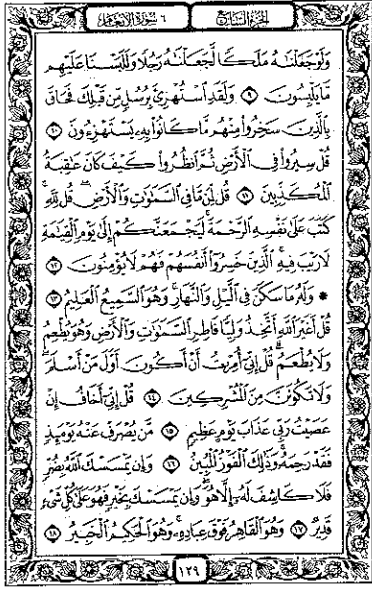 الجزء السابع
٦ سورة الأنعام
وَلَوْ جَعَلْنَٰهُ مَلَكًا لَّجَعَلْنَٰهُ رَجُلًا وَلَلَبَسْنَا عَلَيْهِم
مَّا يَلْبِسُونَ ٩ وَلَقَدِ ٱسْتُهْزِئَ بِرُسُلٍ مِّن قَبْلِكَ فَحَاقَ
بِٱلَّذِينَ سَخِرُوا۟ مِنْهُم مَّا كَانُوا۟ بِهِۦ يَسْتَهْزِءُونَ ١٠
قُلْ سِيرُوا۟ فِى ٱلْأَرْضِ ثُمَّ ٱنظُرُوا۟ كَيْفَ كَانَ عَٰقِبَةُ
ٱلْمُكَذِّبِينَ ١١ قُل لِّمَن مَّا فِى ٱلسَّمَٰوَٰتِ وَٱلْأَرْضِ ۖ قُل لِّلَّهِ ۚ
كَتَبَ عَلَىٰ نَفْسِهِ ٱلرَّحْمَةَ ۚ لَيَجْمَعَنَّكُمْ إِلَىٰ يَوْمِ ٱلْقِيَٰمَةِ
لَا رَيْبَ فِيهِ ۚ ٱلَّذِينَ خَسِرُوٓا۟ أَنفُسَهُمْ فَهُمْ لَا يُؤْمِنُونَ ١٢
* وَلَهُۥ مَا سَكَنَ فِى ٱلَّيْلِ وَٱلنَّهَارِ ۚ وَهُوَ ٱلسَّمِيعُ ٱلْعَلِيمُ ١٣
قُلْ أَغَيْرَ ٱللَّهِ أَتَّخِذُ وَلِيًّا فَاطِرِ ٱلسَّمَٰوَٰتِ وَٱلْأَرْضِ وَهُوَ يُطْعِمُ
وَلَا يُطْعَمُ ۗ قُلْ إِنِّىٓ أُمِرْتُ أَنْ أَكُونَ أَوَّلَ مَنْ أَسْلَمَ ۖ
وَلَا تَكُونَنَّ مِنَ ٱلْمُشْرِكِينَ ١٤ قُلْ إِنِّىٓ أَخَافُ إِنْ
عَصَيْتُ رَبِّى عَذَابَ يَوْمٍ عَظِيمٍ ١٥ مَّن يُصْرَفْ عَنْهُ يَوْمَئِذٍ
فَقَدْ رَحِمَهُۥ ۚ وَذَٰلِكَ ٱلْفَوْزُ ٱلْمُبِينُ ١٦ وَإِن يَمْسَسْكَ ٱللَّهُ بِضُرٍّ
فَلَا كَاشِفَ لَهُۥٓ إِلَّا هُوَ ۖ وَإِن يَمْسَسْكَ بِخَيْرٍ فَهُوَ عَلَىٰ كُلِّ شَىْءٍ
قَدِيرٌ ١٧ وَهُوَ ٱلْقَاهِرُ فَوْقَ عِبَادِهِۦ ۚ وَهُوَ ٱلْحَكِيمُ ٱلْخَبِيرُ ١٨
١٢٩